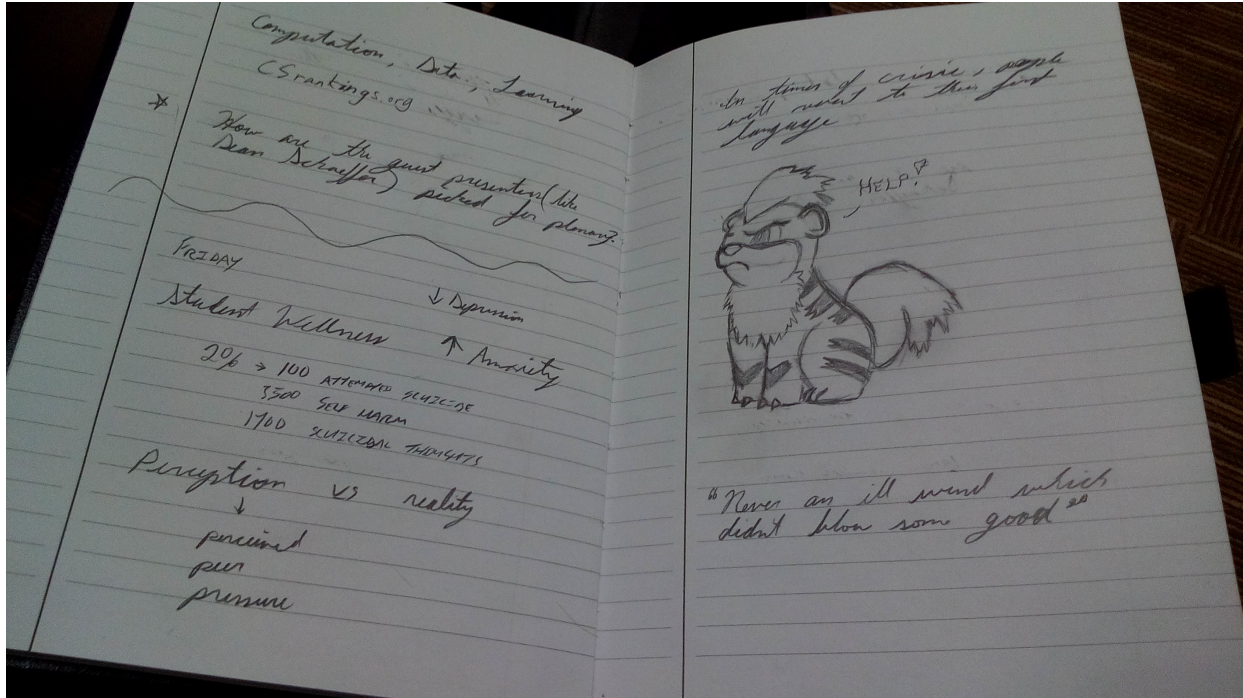 Computation, Data, Learning
CSrankings.org
How are the guest presenters (like
Dean Schaeffer) picked for plenary?
FRIDAY
Student Wellness
↓ Depression
↑ Anxiety
2% → 100 ATTEMPTED SUICIDE
3500 SELF HARM
1700 SUICIDAL THOUGHTS
Perception vs reality
↓
perceived
peer
pressure
In times of crisis, people
will revert to their first
language
HELP!
"Never an ill wind which
didn't blow some good"